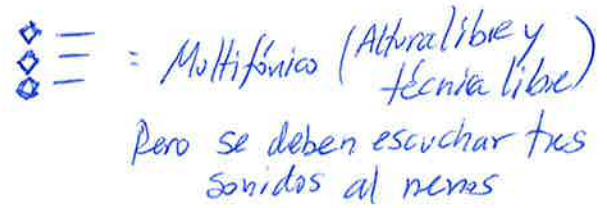 = Multifónico (Altura libre y
técnica libre)
Pero se deben escuchar tres
sonidos al menos